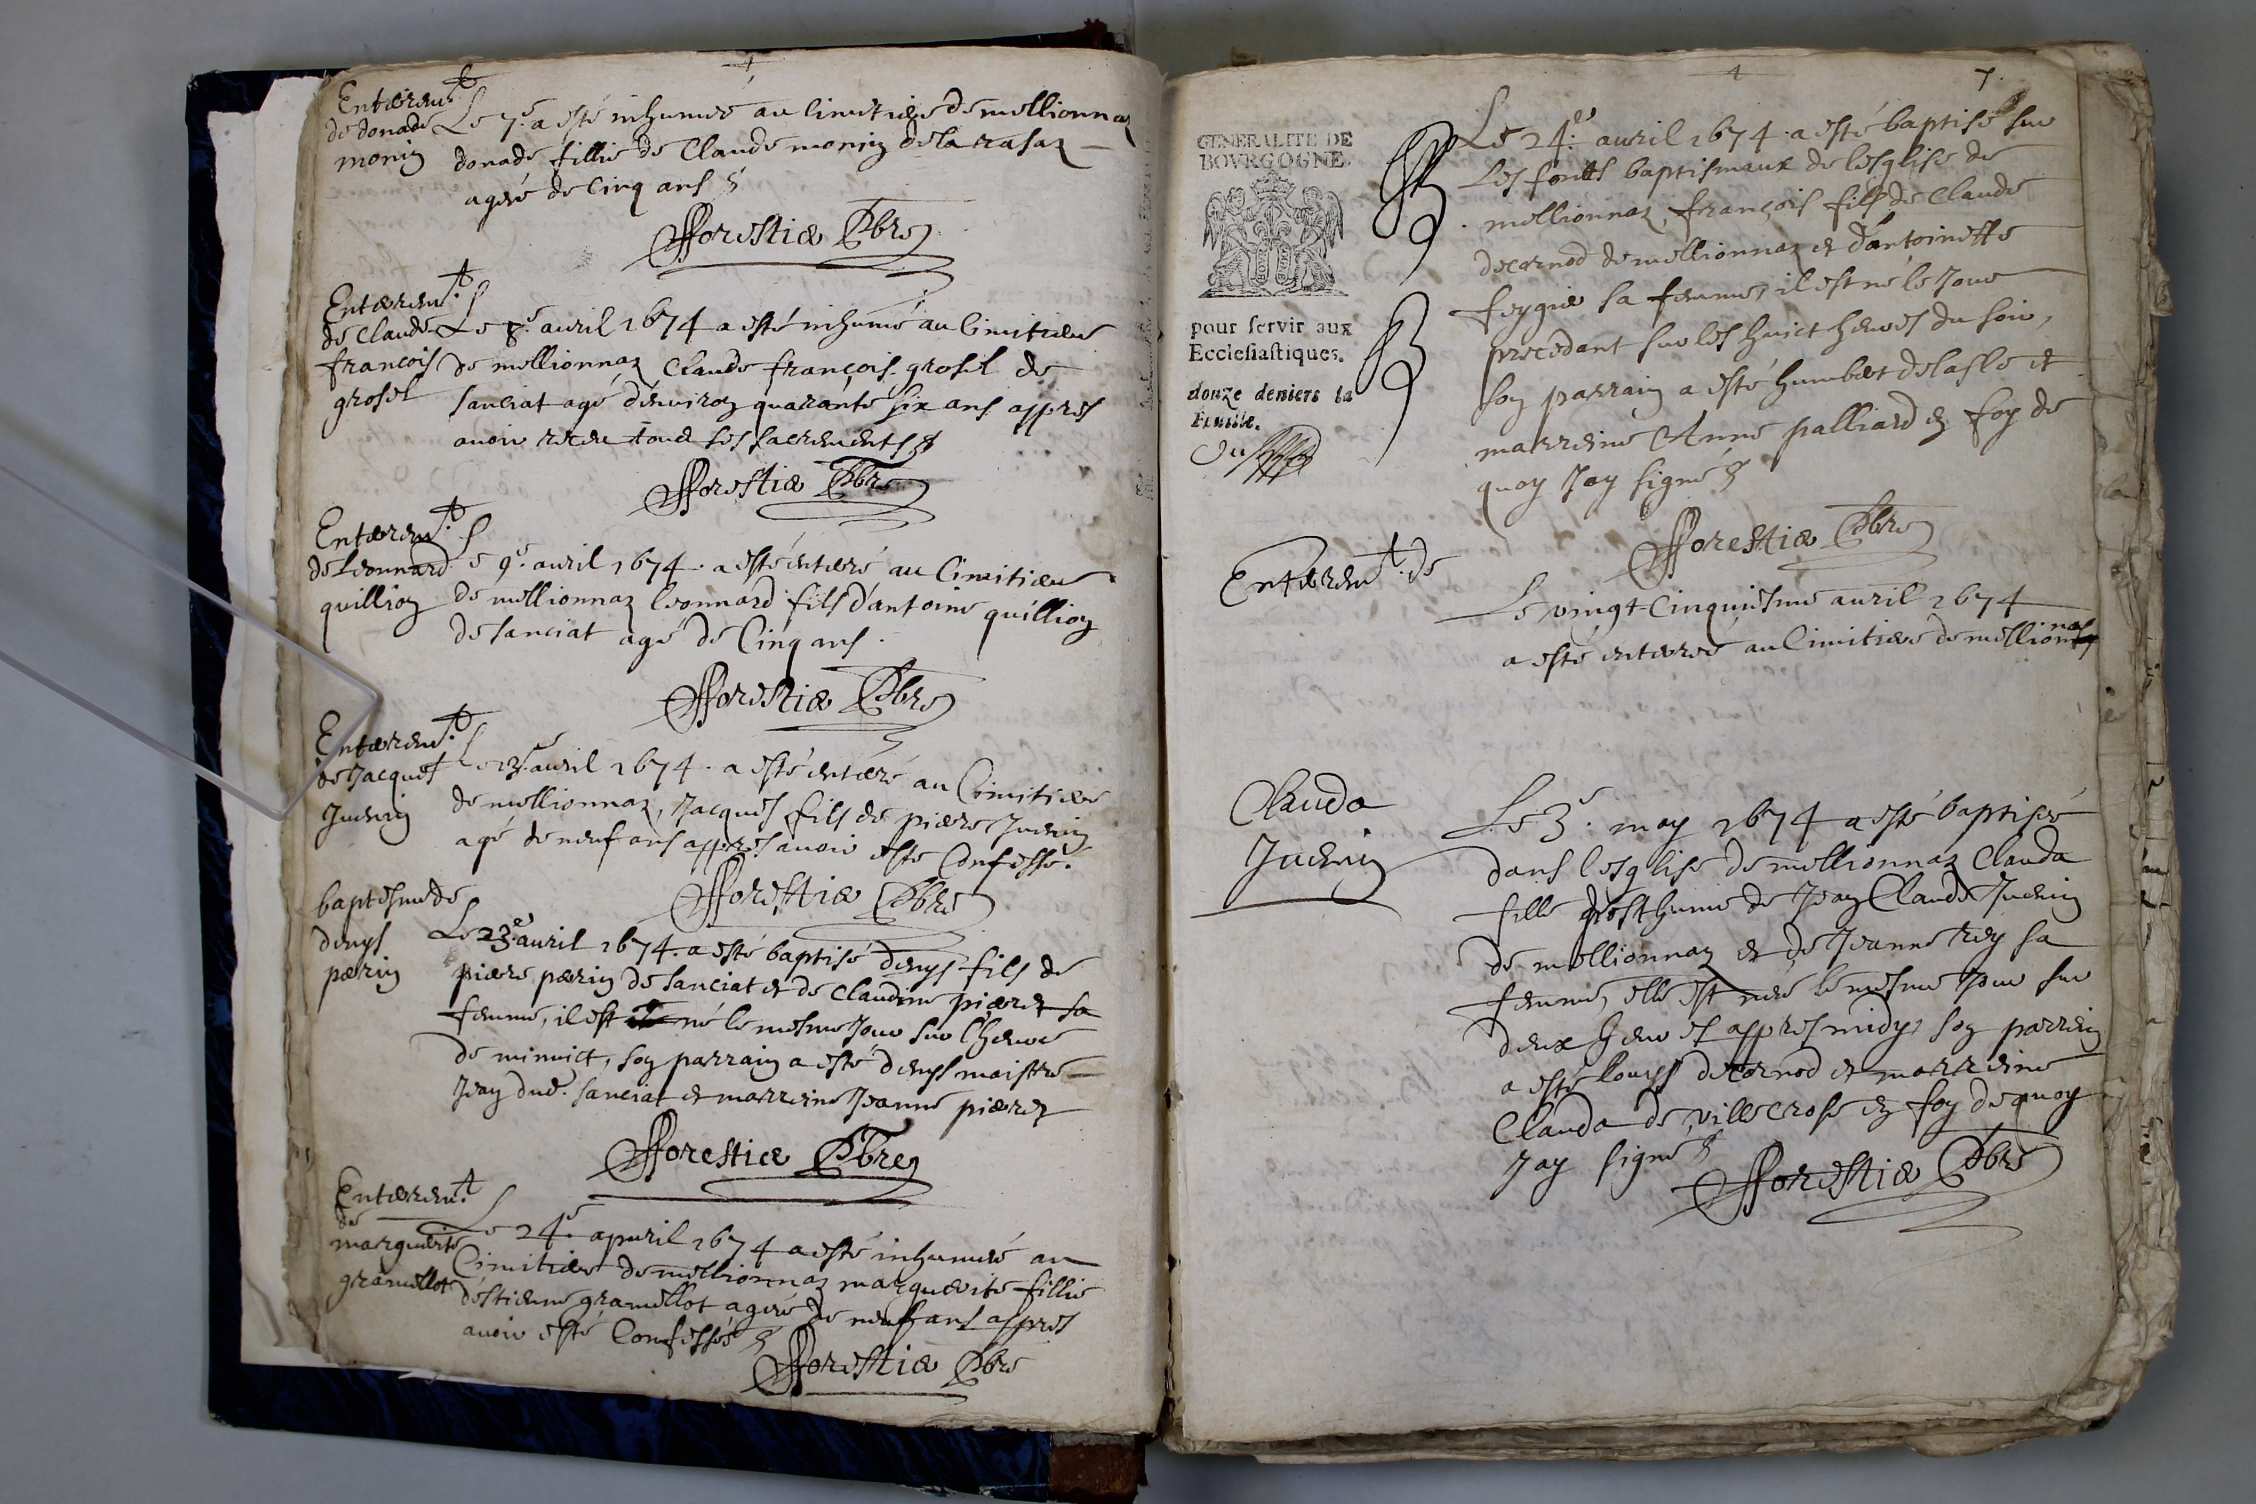 Enterem.t
de donade
monin
Le 7.e a esté inhumée au Cimitiere de mellionnaz
donade fillie de Claude monin de la rasaz
agée de Cinq ans
fforestier Pbre
Enterem.t
de Claude
francois
grosel
Le 8.e auril 1674 a esté inhumé au Cimitiere
de mellionnaz Claude françois grosel de
sanciat agé d'enuiron quarante six ans appres
auoir receu tous ses sacrements
fforestier Pbre
Enterem.t
de Leonnard
quillion
Le 9.e auril 1674. a esté enterré au Cimitiere
de mellionnaz leonnard fils d'antoine quillion
de sanciat agé de Cinq ans.
fforestier Pbre
Enterem.t
de Jacques
Juenin
Le 13.e auril 1674. a esté enterré au Cimitiere
de mellionnaz, Jacques fils de pierre Juenin
agé de neuf ans appres auoir esté Confessé.
fforestier Pbre
baptesme de
denys
perrin
Le 23.e auril 1674. a esté baptisé denys fils de
pierre perrin de sanciat et de Claudine pierrez sa
femme, il est né le mesme Jour sur l'heure
de minuict, son parrain a esté denys maistre
Jean dud. sanciat et marreine Jeanne pierrez
fforestier Pbre
Enterem.t
de
marguerite
gramellot
Le 24.e apuril 1674 a esté inhumée au
Cimitiere de mellionnaz marguerite fillie
d'estienne gramellot agée de neuf ans appres
auoir esté Confessée
fforestier Pbre
7.
GENERALITE DE
BOVRGOGNE.
pour servir aux
Ecclesiastiques.
douze deniers la
Feuille.
Le 24.e auril 1674. a esté baptisé sur
Les fonts baptismaux de lesglise de
mellionnaz, françois fils de Claude
decornod de mellionnaz et d'antoinette
feygue sa femme, il est né le Jour
precedant sur les huict heures du soir,
son parrain a esté humbert delasle et
marreine Anne palliard en foy de
quoy Jay signé
fforestier Pbre
Enterem.t de
Le vingt Cinquiesme auril 1674
a esté enterré au Cimitiere de mellionnaz
Clauda
Juenin
Le 3.e may 1674 a esté baptisée
dans l'esglise de mellionnaz Clauda
fille posthume de Jean Claude Juenin
de mellionnaz et de Jeanne rey sa
femme, elle est née le mesme Jour sur
deux heures appres midy, son parrein
a esté louys decornod et marreine
Clauda de villecrose en foy de quoy
Jay signé
fforestier Pbre